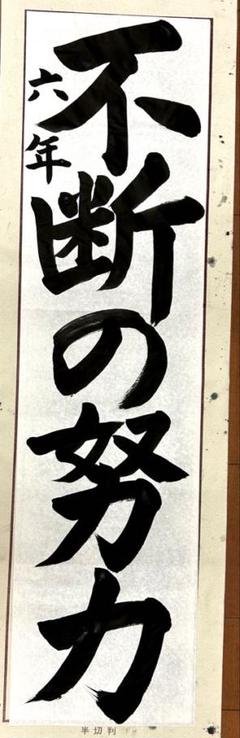 不断の努力
六年
半切判